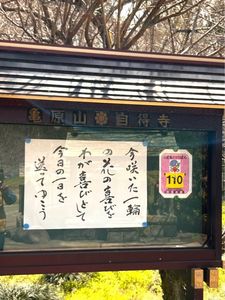 亀原山 自得寺
今咲いた一輪
の花の喜びを
わが喜びとして
今日の一日を
送てゆこう
110